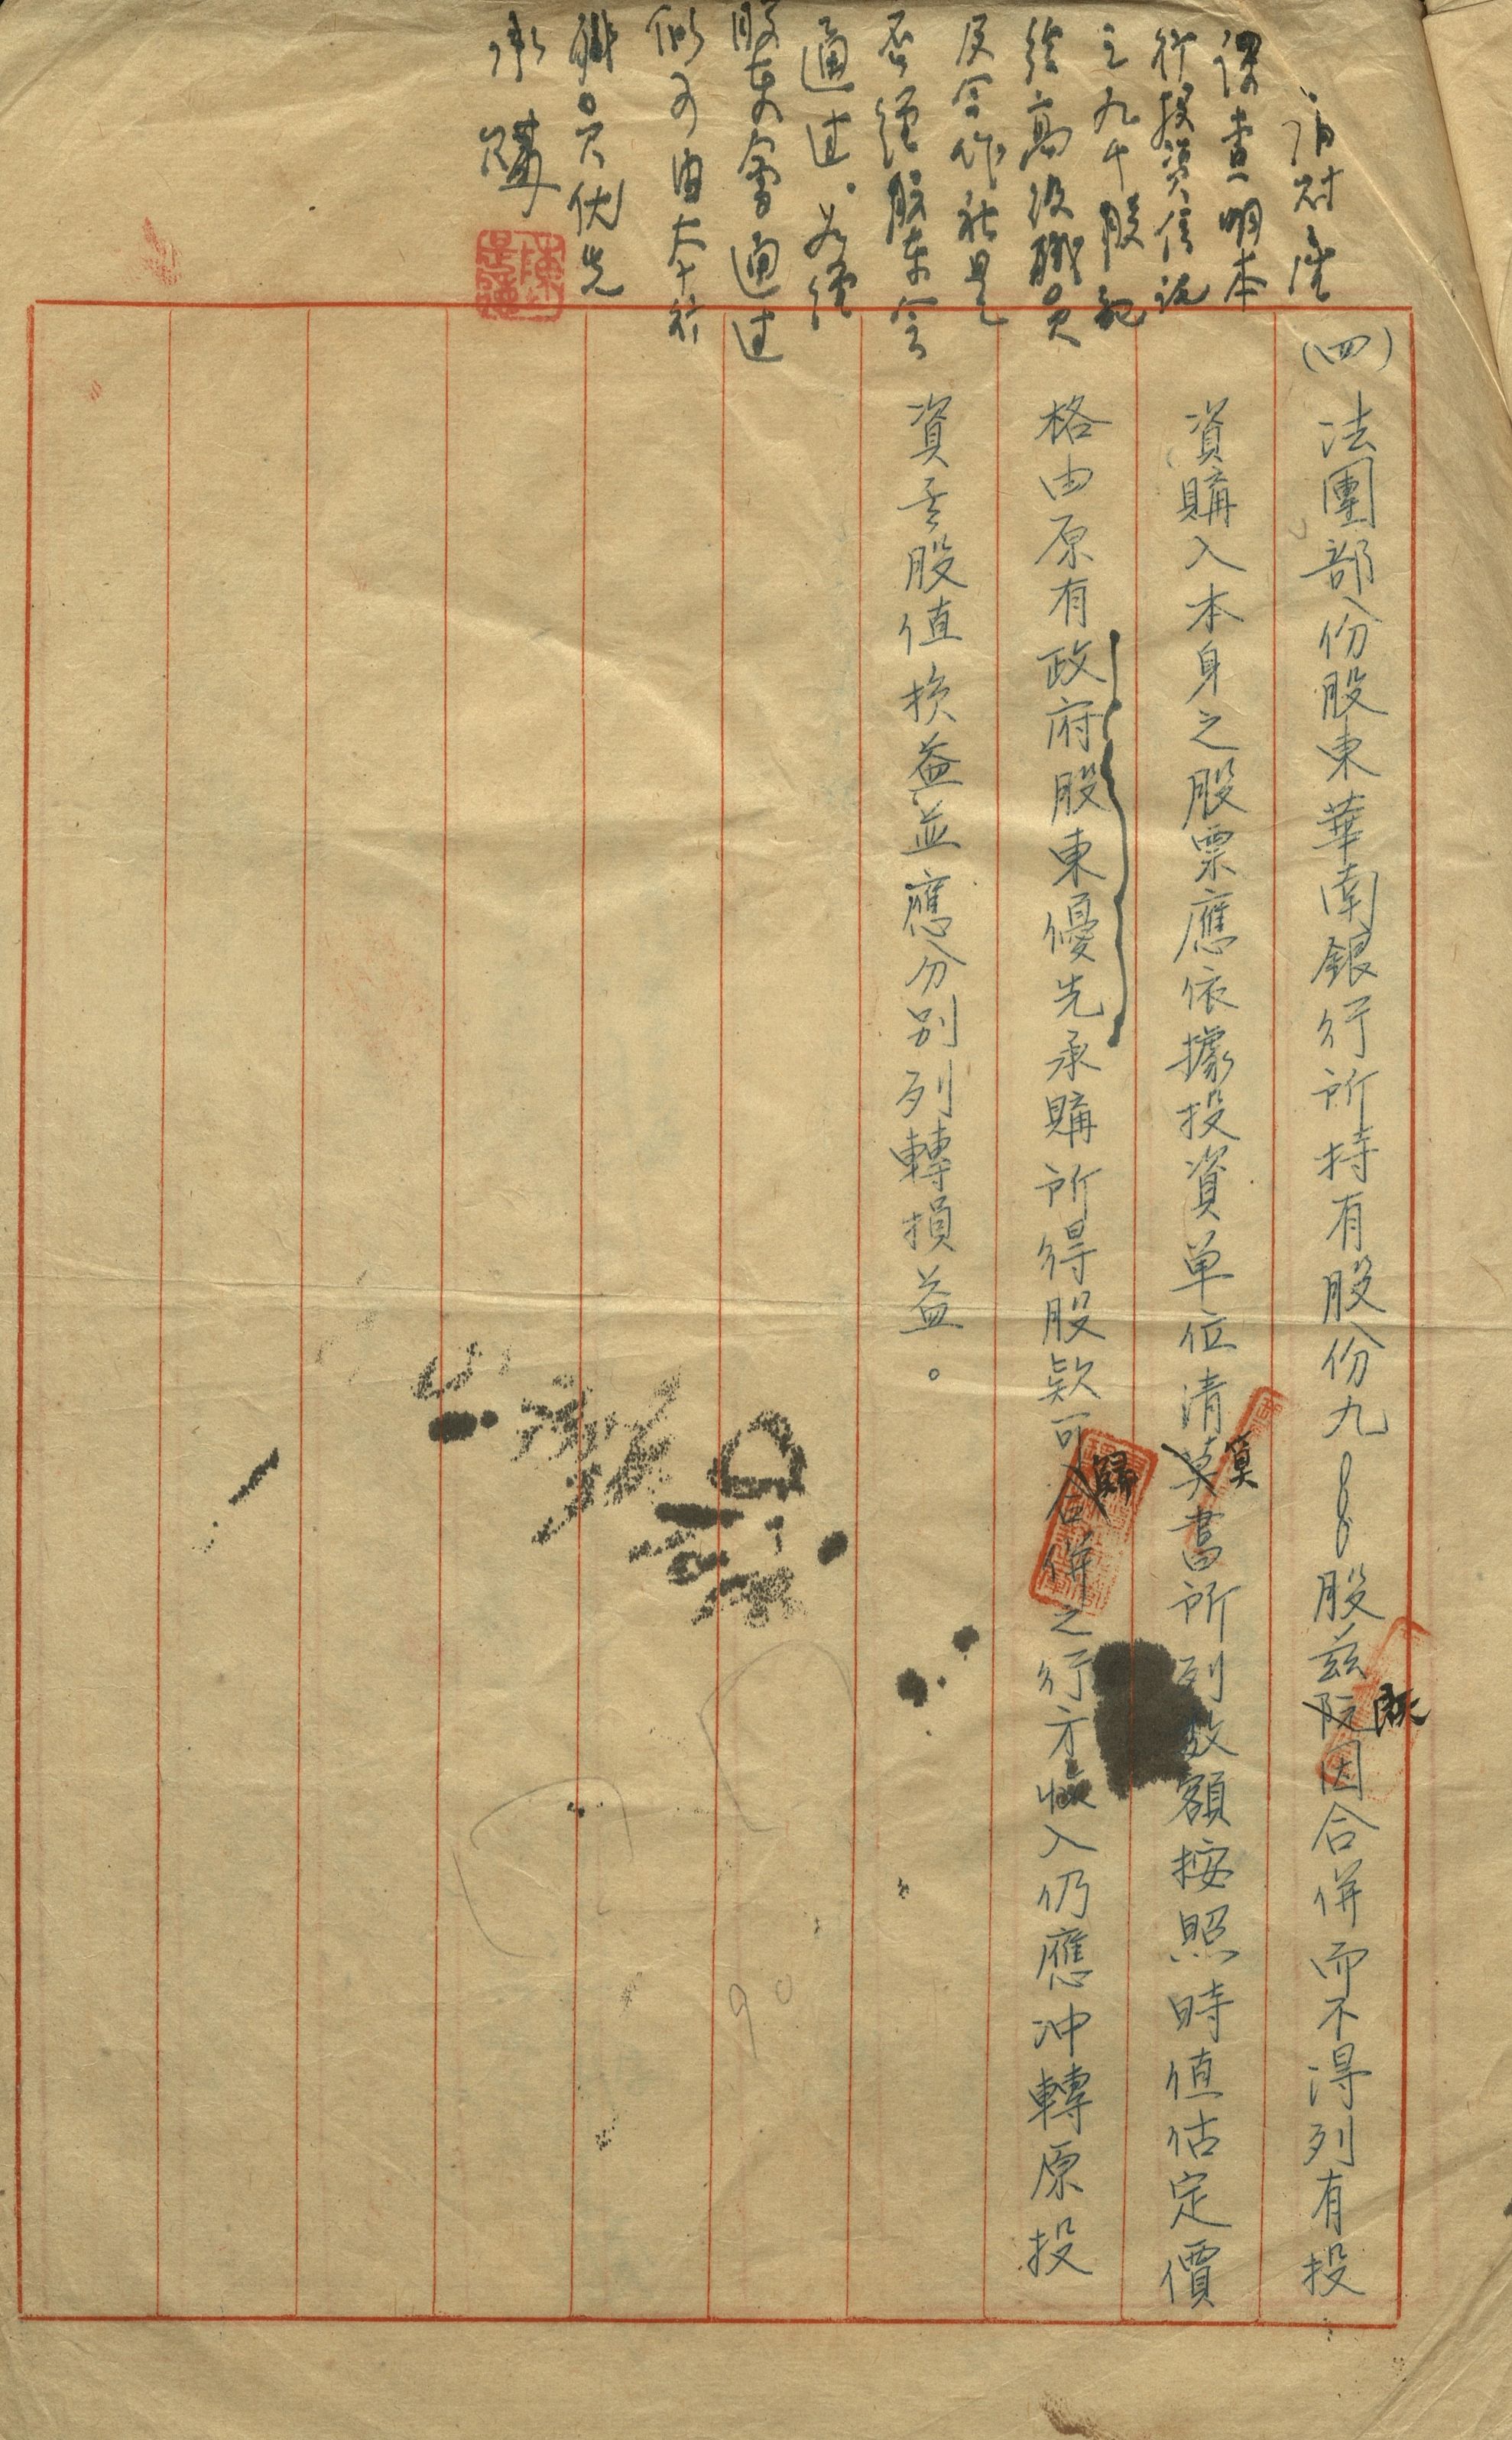 請財產
課查明本
行投資信託
之九十股配
給高級職員
及合作社是
否經股東會
通過。若經
股東會通過
似可由本行
職員优先
承購
(四)法團部份股東華南銀行所持有股份九〇〇股茲既因合併而不得列有投
資購入本身之股票應依據投資单位清算書所列數額按照時值估定價
格由原有政府股東優先承購所得股款可歸併之行方收入仍應冲轉原投
資至股值損益並應分别列轉損益。
90